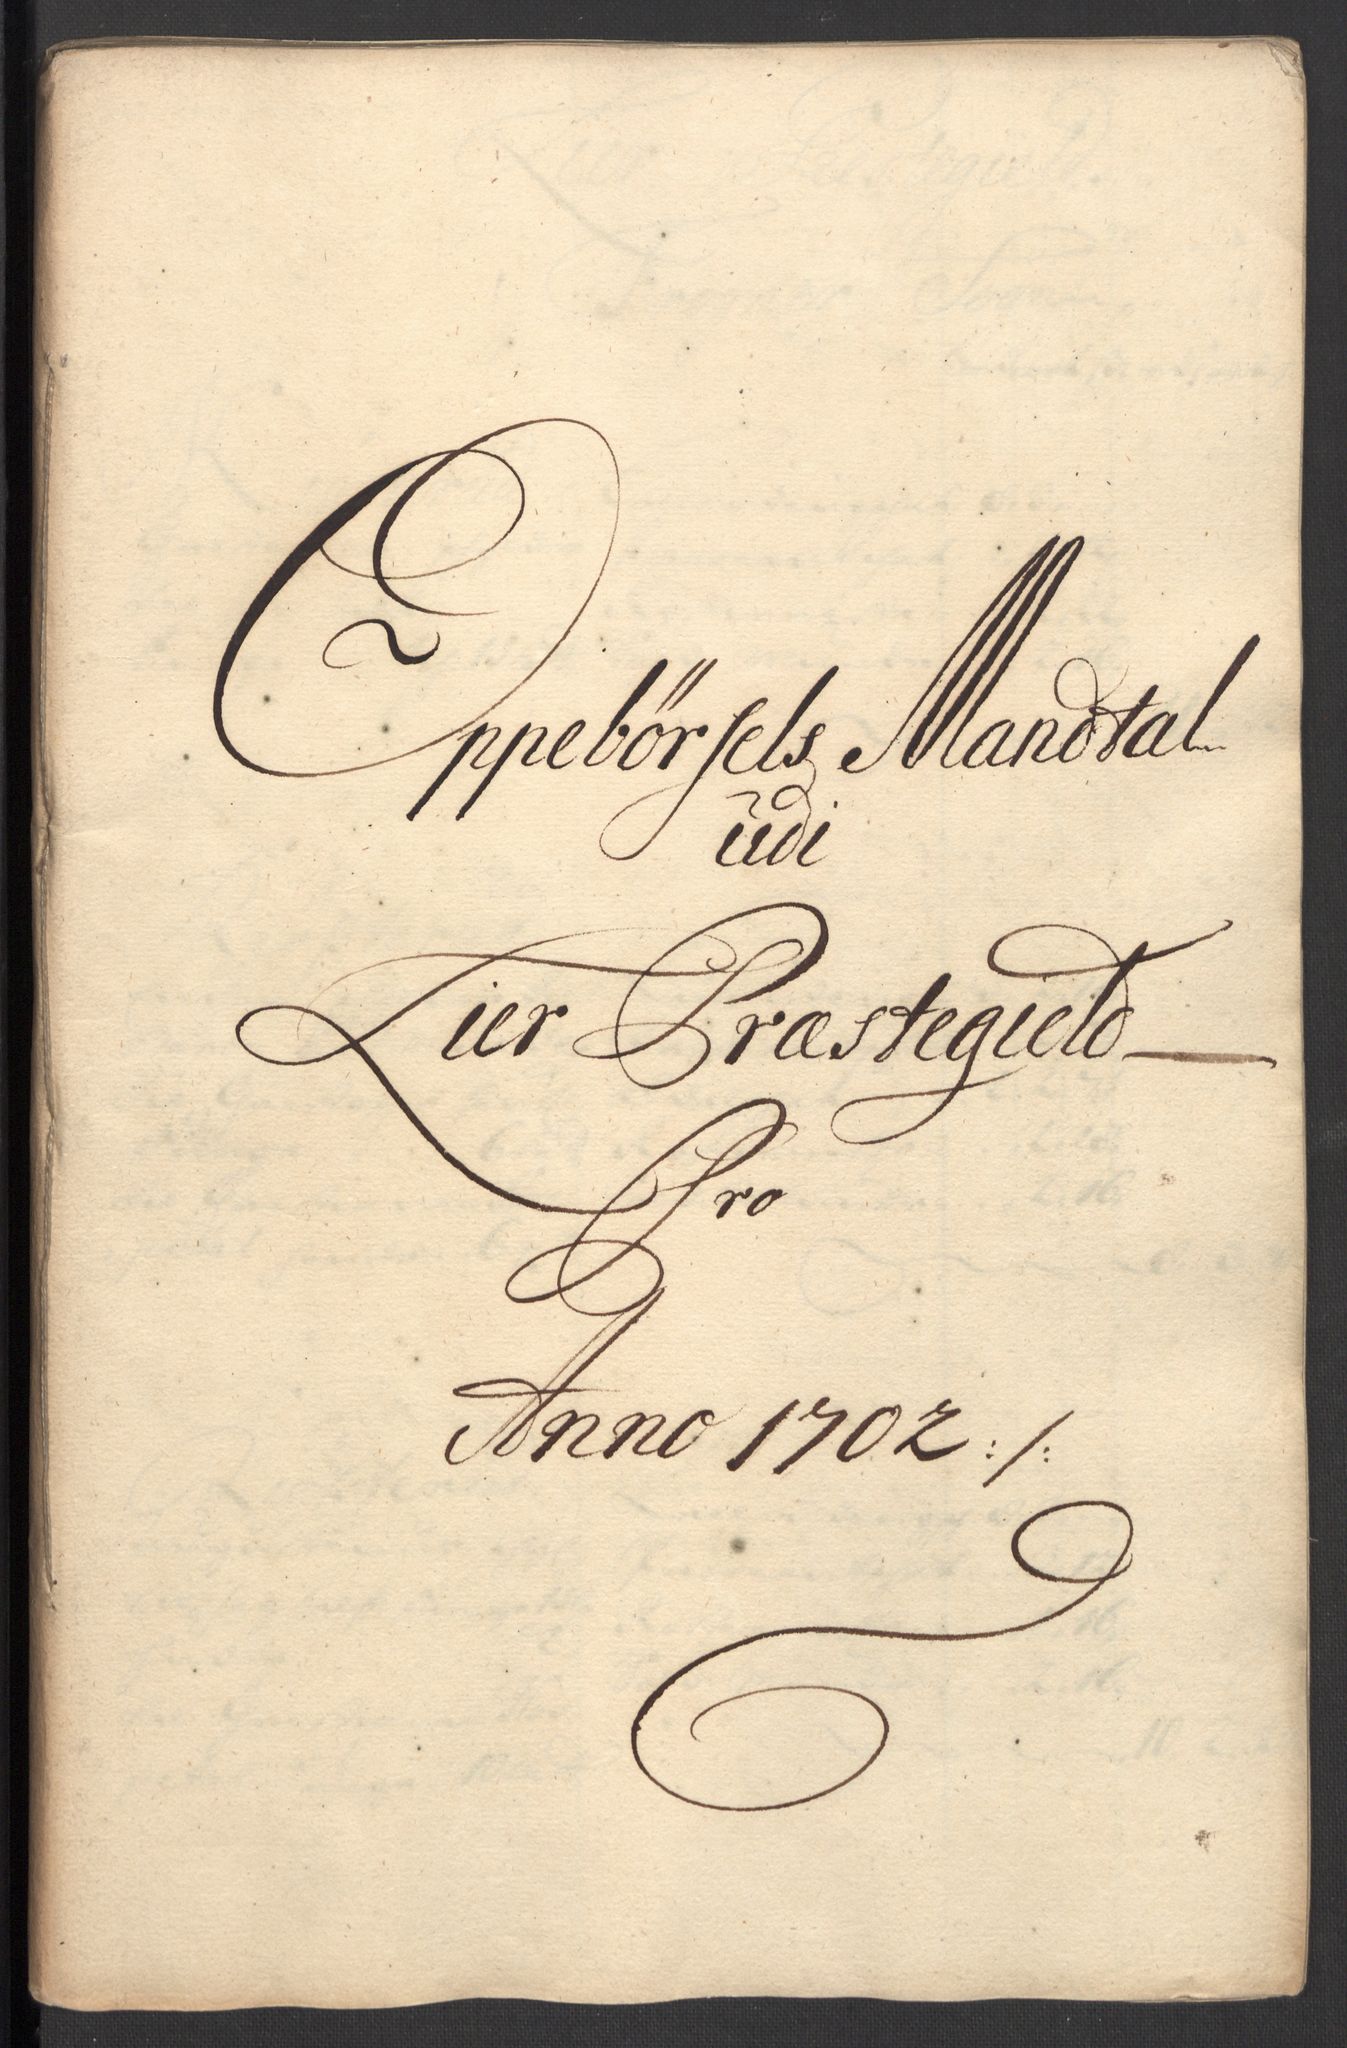 Oppebörsels Mandtal
udi
Lier Præstegield
Pro
Anno 1702 :/: